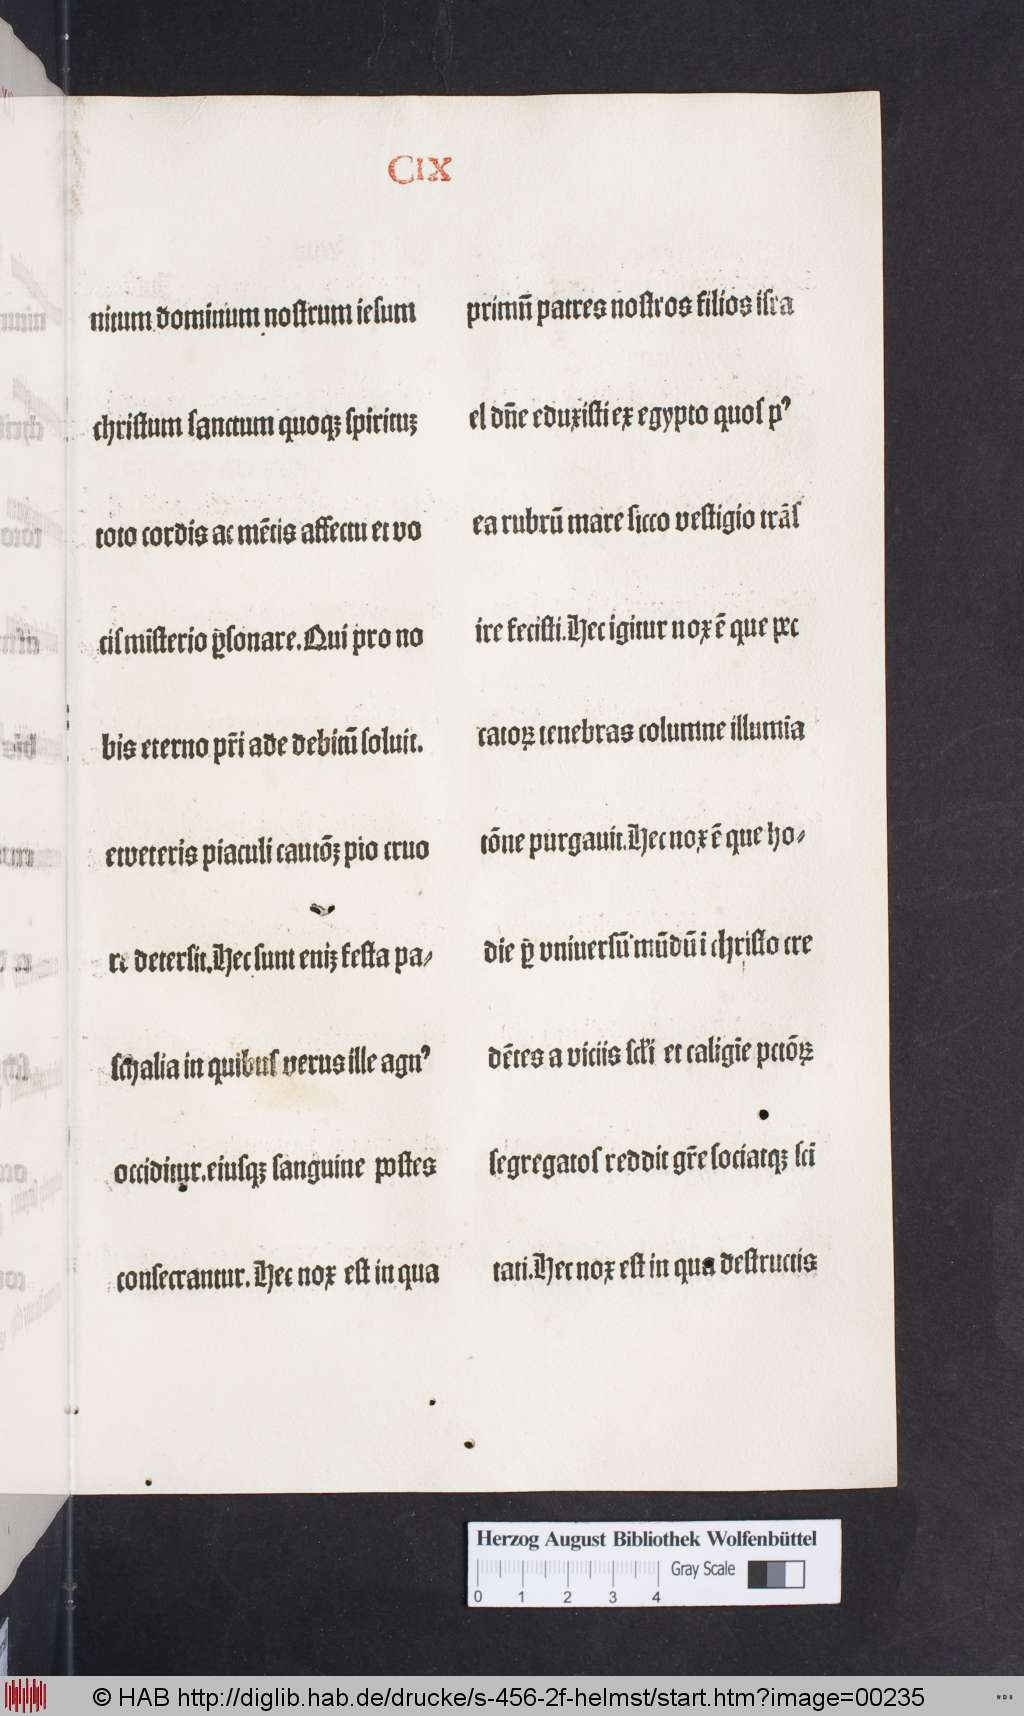 CIX
nitum dominum nostrum iesum
christum sanctum quoqꝫ spirituꝫ
toto cordis ac mētis affectu et vo
cis mīsterio p̱sonare. Qui pro no
bis eterno pr̄i ade debitū soluit.
etveteris piaculi cautōꝫ pio cruo
re detersit. Hec sunt eniꝫ festa pa⸗
schalia in quibus verus ille agnꝰ
occiditur. eiusqꝫ sanguine postes
consecrantur. Hec nox est in qua
primū patres nostros filios isra
el dn̄e eduxisti ex egypto quos pꝰ
ea rubrū mare sicco vestigio trās
ire fecisti. Hec igitur nox ē que pec
catoꝝ tenebras columne illumīa
tōne purgauit. Hec nox ē que ho⸗
die p̱ vniuersū mūdū ī christo cre
dētes a viciis scl̄i et caligīe pctōꝝ
segregatos reddit gr̄e sociatqꝫ scī
tati. Hec nox est in qua destructis
Herzog August Bibliothek Wolfenbüttel
Gray Scale
0 1 2 3 4
© HAB http://diglib.hab.de/drucke/s-456-2f-helmst/start.htm?image=00235